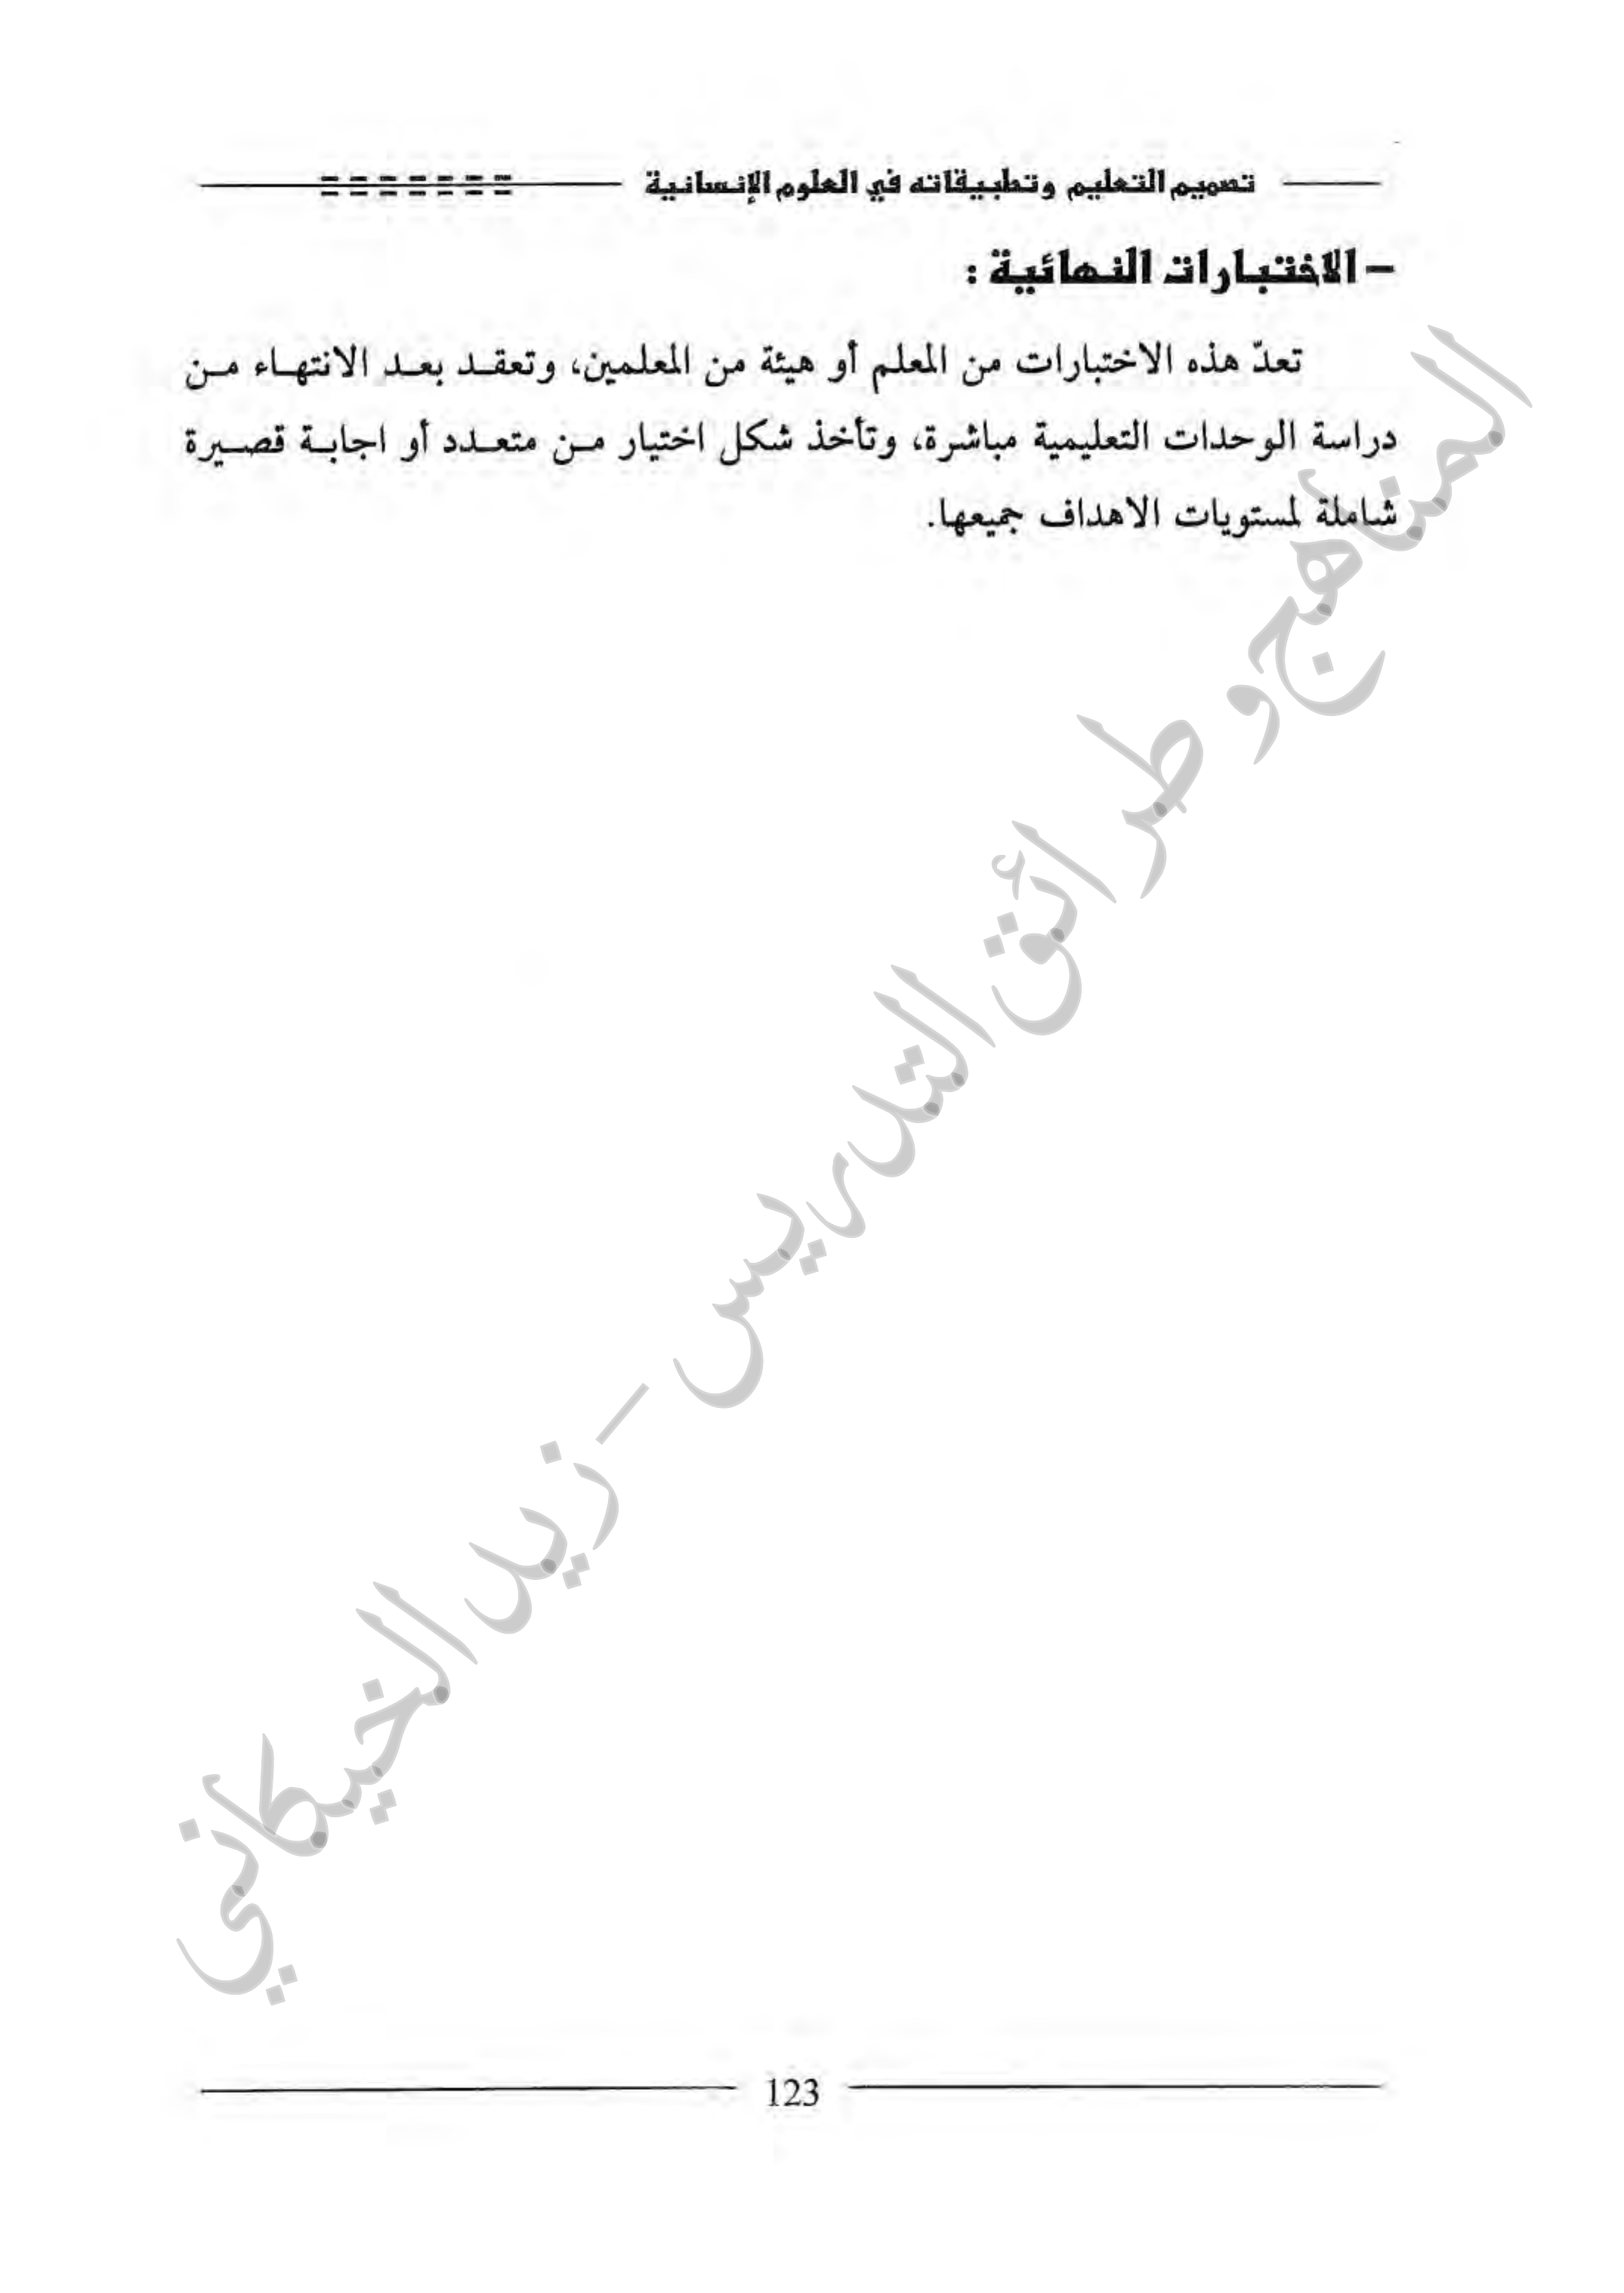 تصميم التعليم وتطبيقاته في العلوم الإنسانية
– الاختبارات النهائية :
تعدّ هذه الاختبارات من المعلم أو هيئة من المعلمين، وتعقد بعد الانتهاء من
دراسة الوحدات التعليمية مباشرة، وتأخذ شكل اختيار من متعدد أو اجابة قصيرة
شاملة لمستويات الاهداف جميعها.
المناهج و طرائق التدريس - زيد الخيكاني
123